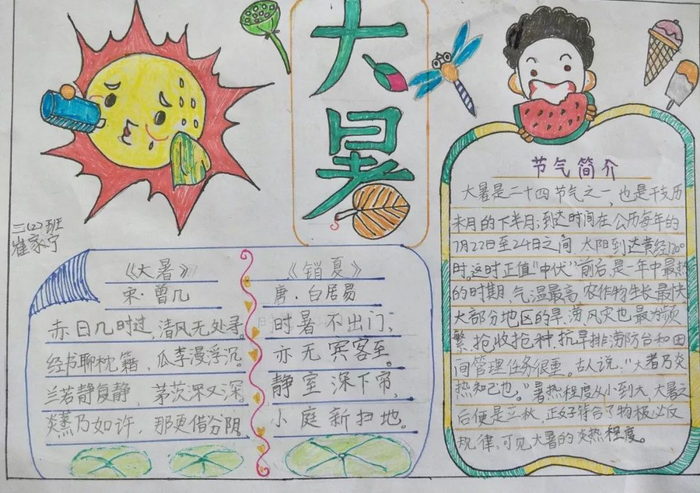 大暑
三(2)班
崔家宁
《大暑》
宋·曾几
赤日几时过,清风无处寻。
经书聊枕籍,瓜李漫浮沉。
兰若静复静,茅茨深又深。
炎蒸乃如许,那更惜分阴。
《销夏》
唐·白居易
时暑不出门,
亦无宾客至。
静室深下帘,
小庭新扫地。
节气简介
大暑是二十四节气之一,也是干支历
末月的下半月;到达时间在公历每年的
7月22日至24日之间,太阳到达黄经120°
时,这时正值"中伏"前后,是一年中最热
的时期,气温最高,农作物生长最快,
大部分地区的旱、涝、风灾也最为频
繁,抢收抢种,抗旱排涝防台和田
间管理任务很重。古人说:"大者乃炎
热知己也。"暑热程度从小到大,大暑之
后便是立秋,正好符合了物极必反
规律,可见大暑的炎热程度。